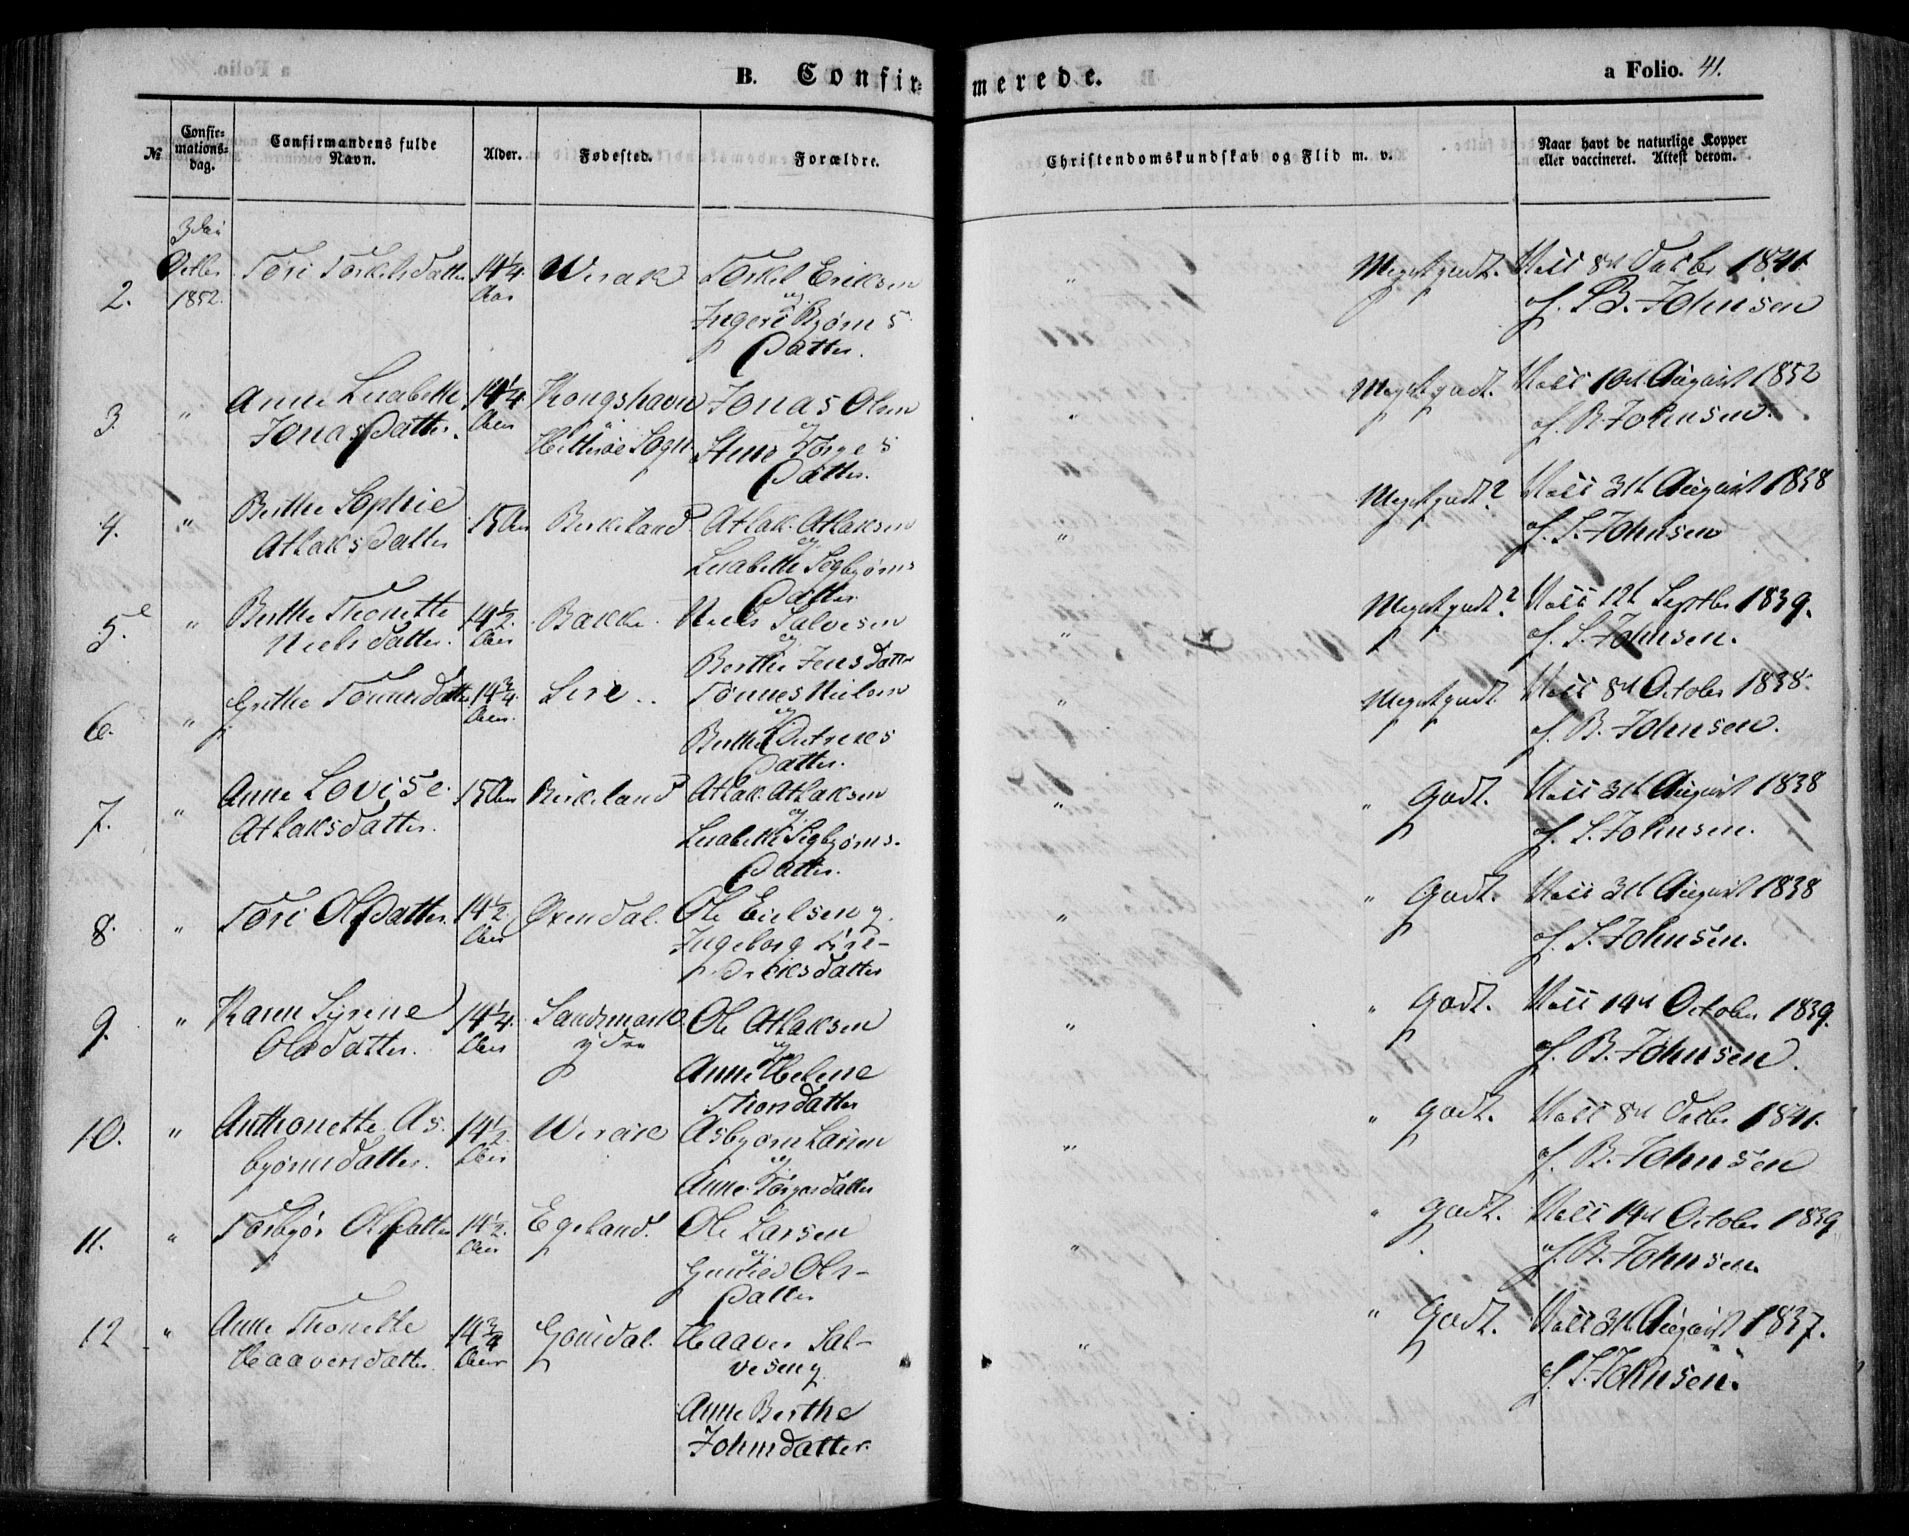 B. Confirmerede.
a Folio. 41.
№
Confir=
mations=
dag.
Confirmandens fulde
Navn.
Alder.
Fødested.
Forældre.
Christendomskundskab og Flid m. v.
Naar havt de naturlige Kopper
eller vaccineret. Attest derom.
2.
3die
Octbr
1852.
Tori Torkelsdatter
14 1/4
Aar
Werak
Torkel Eriksen
og
Ingeri Bjørns
Datter.
"
Meget godt.
Vacc 8d Octbr 1841
af B. Johnsen
3.
"
Anne Lisabethe
Jonas Datter.
14 1/4
Aar
Kongshavn
Hitterøe Sogn
Jonas Olsen
og
Torges
Datter.
"
Meget godt.
Vacc 10d August 1852
af B. Johnsen.
4.
"
Berthe Sophie
Atlaksdatter
15 Aar
Birkeland
Atlak Atlaksen
og
Lisabethe Segbjørns
Datter
"
Meget godt?
Vacc 31t August 1838
af S. Johnsen
5.
"
Berthe Thonette
Nielsdatter.
14 1/2
Aar
Bakke.
Niels Salvesen
og
Berthe Jensdatter
"
Meget godt?
Vacc 12t Septbr 1839.
af S. Johnsen.
6.
"
Grethe Tønnesdatter
14 3/4
Aar.
Lire..
Tønnes Nielsen
og
Berthe
Datter.
"
Meget godt.
Vacc 8d October 1838.
af B. Johnsen.
7.
"
Anne Lovise
Atlaksdatter.
15 Aar
Birkeland
Atlak Atlaksen
og
Lisabethe Segbjørns-
Datter.
"
" Godt.
Vacc 31t August 1838
af S. Johnsen.
8.
"
Tori Olsdatter.
14 1/2
Aar
Ørendal.
Ole Eielsen og
Ingeborg Fre-
driksdatter
"
" Godt.
Vacc 31t August 1838
af S. Johnsen.
9.
"
Karen Sirine
Olsdatter.
14 1/4
Aar
Sandsmark
ydre
Ole Atlaksen
og
Anne Helene
Thorsdatter
"
" Godt.
Vacc 14d October 1839.
af B. Johnsen.
10.
"
Anthonette As-
bjørnsdatter.
14 1/2
Aar
Werak
Asbjørn Larsen
og
Anne Torgersdatter
"
" Godt.
Vacc 8d Octbr 1841.
af B. Johnsen
11.
"
Torbjør Olsdatter
14 1/2.
Aar
Egeland.
Ole Larsen
og
Ols-
Datter
"
" Godt.
Vacc 14d October 1839
af B. Johnsen.
12
"
Anne Thonette
Haaversdatter.
14 3/4
Aar
Haaver Sal-
vesen og
Anne Berthe
Johnsdatter.
"
" Godt.
Vacc 31t August 1837.
af S. Johnsen.